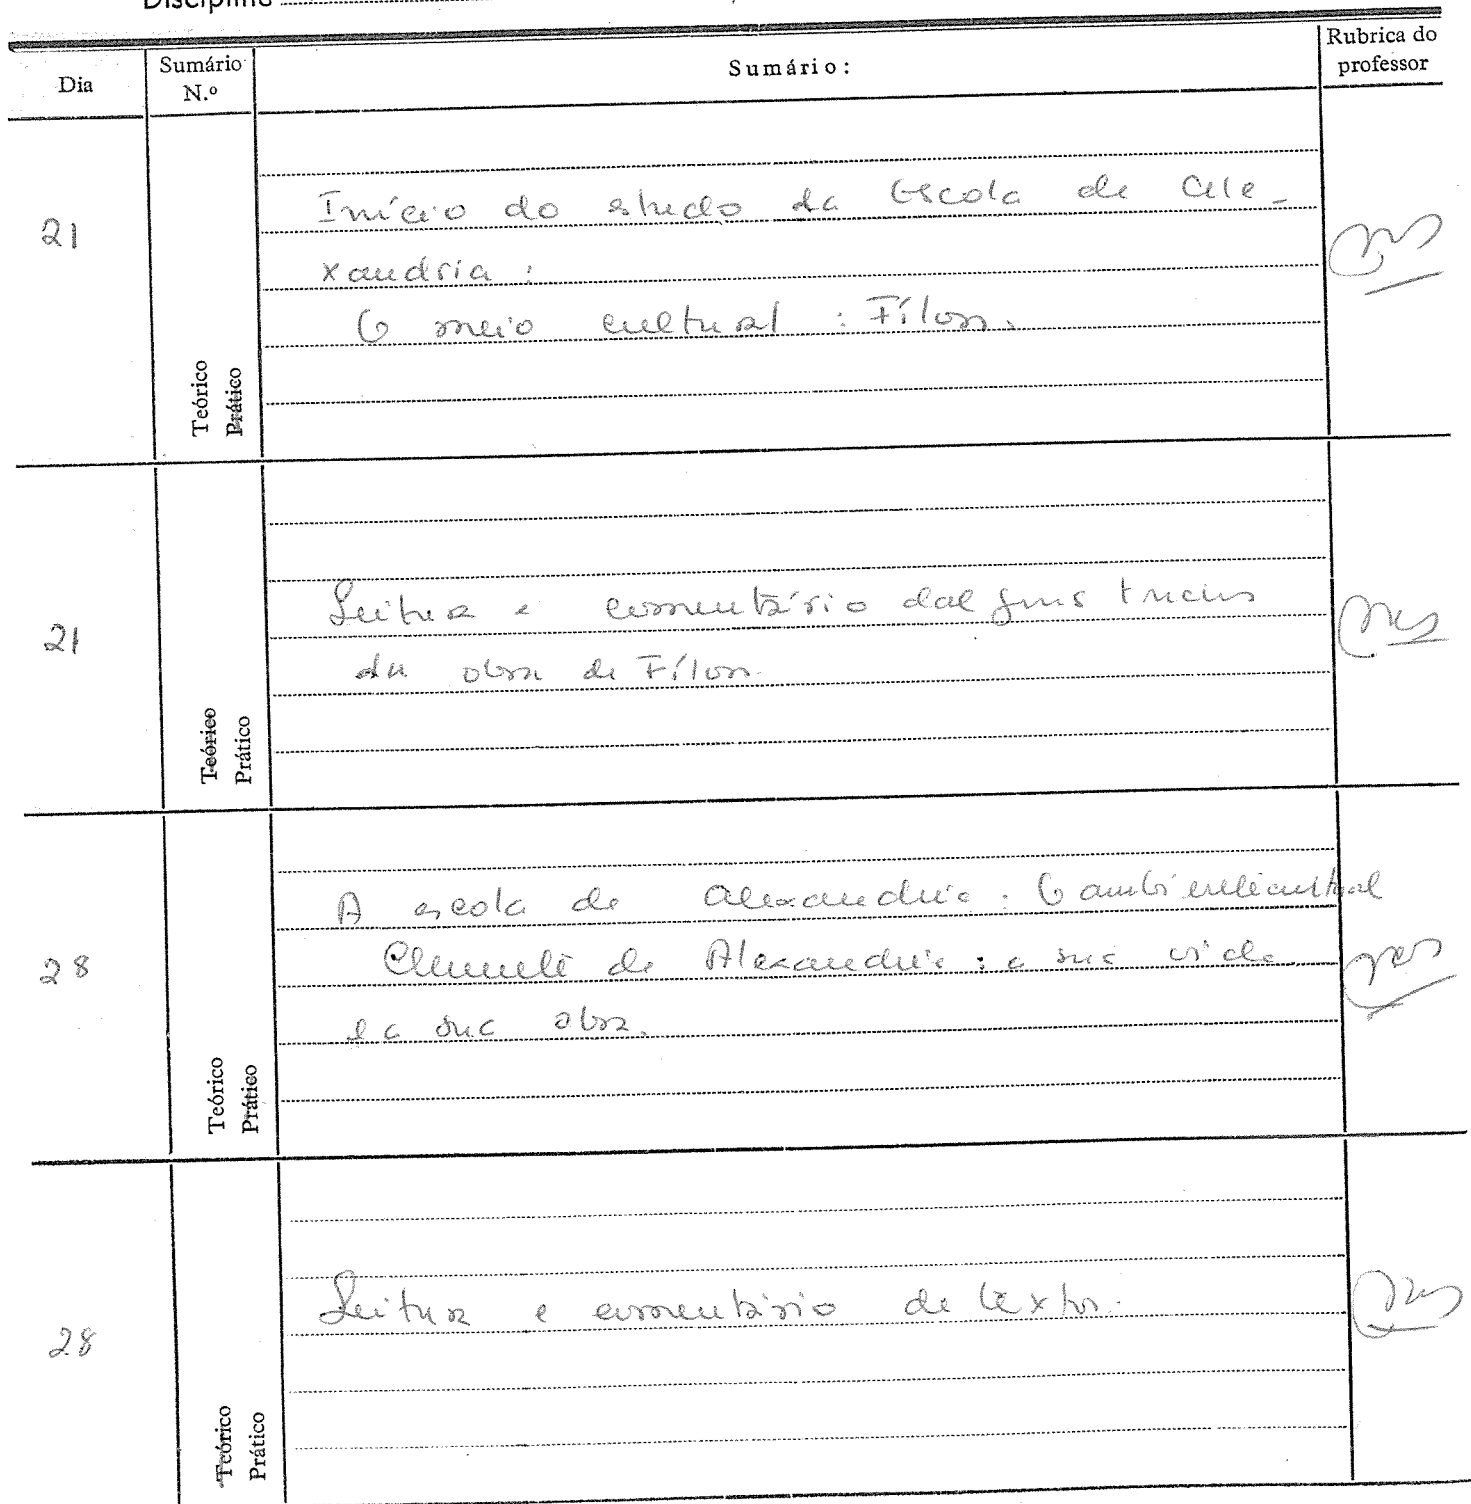 Disciplina
Dia
Sumário
N.º
Sumário:
Rubrica do
professor
21
Início do estudo da Escola de Ale-
xandria:
O meio cultural: Fílon.
Teórico
Prático
21
Leitura e comentário dalguns trechos
da obra de Fílon.
Teórico
Prático
28
A escola de Alexandria: O ambiente cultural
Clemente de Alexandria: a sua vida
e a sua obra.
Teórico
Prático
28
Leitura e comentário de textos.
Teórico
Prático